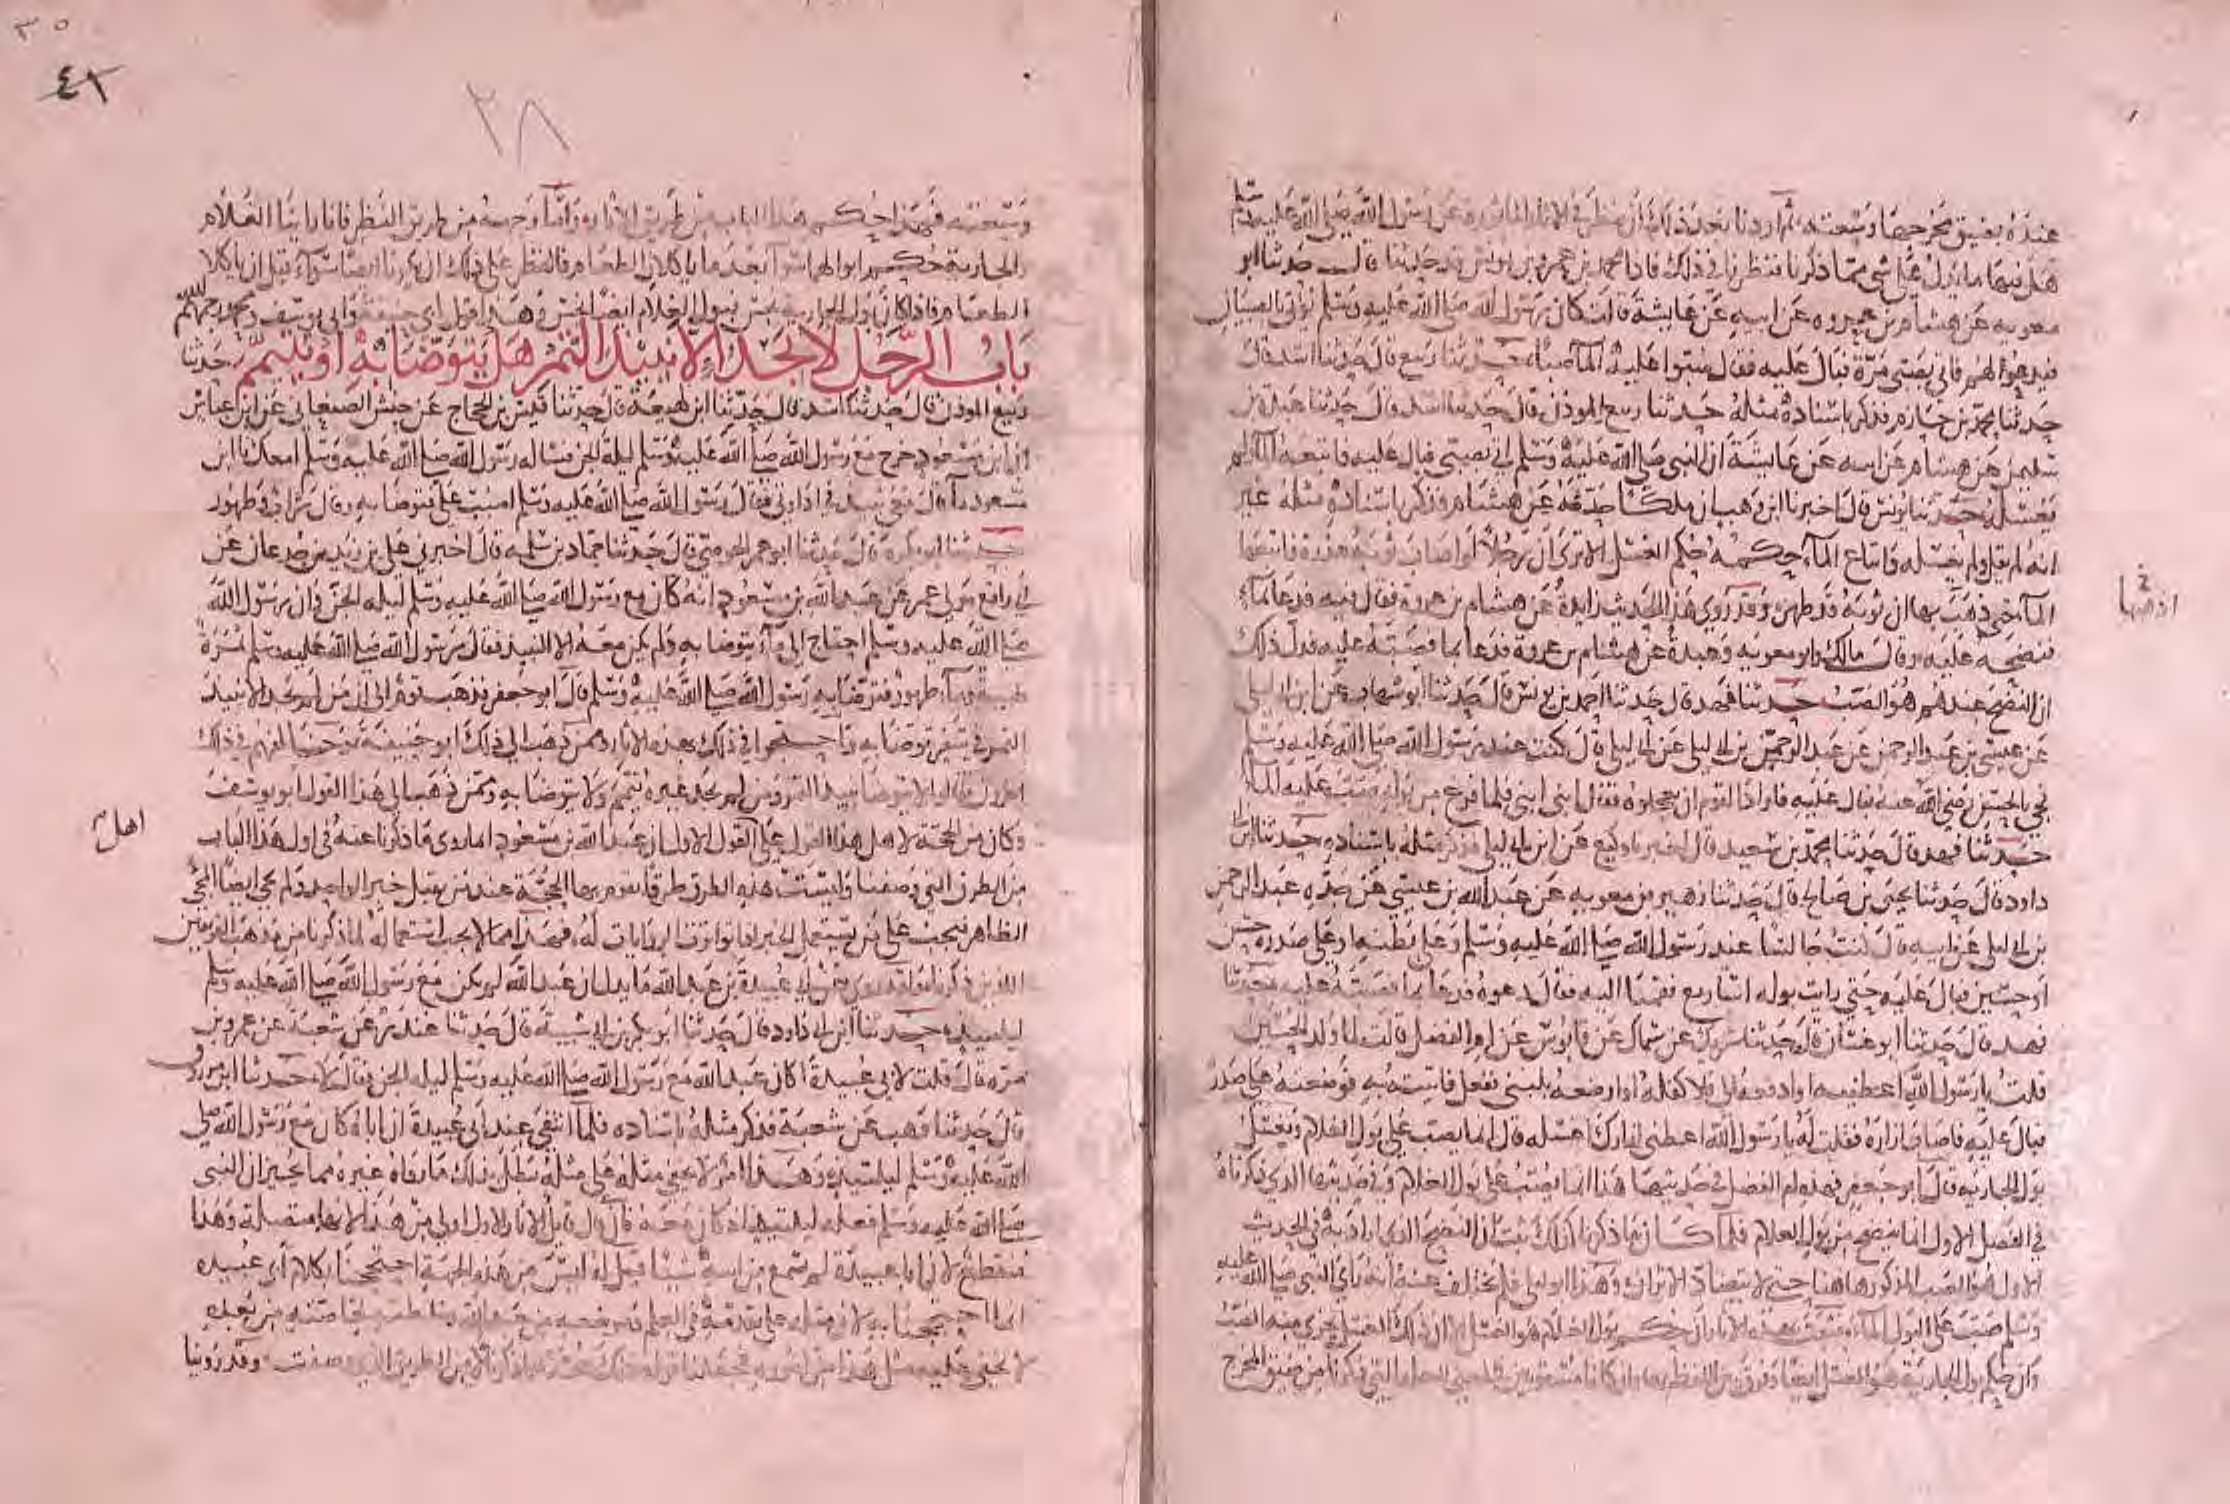 عنده بضيق مخرجها وسعته ثم اردنا بعد ذلك ان ننظر في الاثار الماثورة عن رسول الله صلى الله عليه وسلم
هل فيها ما يدل على شي مما ذكرنا فنظرنا في ذلك فاذا محمد بن عمرو بن يونس قد حدثنا قال حدثنا ابو
معويه عن هشام بن عروه عن ابيه عن عايشة قالت كان رسول الله صلى الله عليه وسلم يؤتى بالصبيان
فيدعوا لهم فاتي بصبي مرة فبال عليه فقال صبوا عليه الما صبا حدثنا ربيع قال حدثنا اسد قال
حدثنا محمد بن خازم فذكر باسناده مثله حدثنا ربيع الموذن قال حدثنا اسد قال حدثنا عبدة بن
سليمن عن هشام عن ابيه عن عايشة ان النبي صلى الله عليه وسلم اتي بصبي فبال عليه فاتبعه الما ولم
يغسله حدثنا يونس قال اخبرنا ابن وهب ان ملكا حدثه عن هشام فذكر باسناده مثله غير
انه لم يقل ولم يغسله واتباع الماء حكمه حكم الغسل الا ترى ان رجلا لو اصاب ثوبه عذرة فاتبعها
الما حتى ذهب بها ان ثوبه قد طهر وقد روى هذا الحديث زايدة عن هشام بن عروة فقال فيه فدعا بماء
فنضحه عليه وقال مالك وابو معويه وعبدة عن هشام بن عروة فدعا بما فصبه عليه فدل ذلك
ان النضح عندهم هو الصب حدثنا فهد قال حدثنا احمد بن يونس قال حدثنا ابو شهاب عن ابن ابي ليلى
عن عيسى بن عبد الرحمن عن عبد الرحمن بن ابي ليلى عن ابي ليلى قال كنت عند رسول الله صلى الله عليه وسلم
فجي بالحسن رضي الله عنه فبال عليه فاراد القوم ان يعجلوه فقال ابني ابني فلما فرغ من بوله صب عليه الما
حدثنا فهد قال حدثنا محمد بن سعيد قال اخبرنا وكيع عن ابن ابي ليلى فذكر مثله باسناده حدثنا ابن ابي
داود قال حدثنا يحيى بن صالح قال حدثنا زهير بن معويه عن عبد الله بن عيسى عن جده عبد الرحمن
بن ابي ليلى عن ابيه قال كنت جالسا عند رسول الله صلى الله عليه وسلم وعلى بطنه او على صدره حسن
او حسين فبال عليه حتى رايت بوله اساريع فقمنا اليه فقال دعوه فدعا بما فصبه عليه حدثنا
فهد قال حدثنا ابو غسان قال حدثنا شريك عن سماك عن قابوس عن ام الفضل قالت لما ولد الحسين
قلت يا رسول الله اعطنيه او ادفعه الي فلاكفله او ارضعه بلبني ففعل فاتيته به فوضعه على صدره
فبال عليه فاصاب ازاره فقلت له يا رسول الله اعطني ازارك اغسله قال انما يصب على بول الغلام ويغسل
بول الجاريه قال ابو جعفر فهذه ام الفضل في حديثها هذا انما يصب على بول الغلام وفي حديثها الذي ذكرناه
في الفصل الاول انما ينضح من بول الغلام فلما كان ما ذكرنا كذلك ثبت ان النضح الذي اراد به في الحديث
الاول هو الصب المذكور هاهنا حتى لا يتضاد الاثران وهذا ابو ليلى فلم يختلف عنه انه راى النبي صلى الله عليه
وسلم صب على البول الماء فثبت بهذه الاثار ان حكم بول الغلام هو الغسل الا ان ذلك الغسل يجزي منه الصب
وان حكم بول الجارية هو الغسل ايضا وفرق بين اللفظ بهما وان كانا مستويين في المعنى للعلة التي ذكرنا من ضيق المخرج
ادخلها
٣٥
٤١
٣٨
وسعته فهذا حكم هذا الباب من طريق الاثار واما وجهه من طريق النظر فانا راينا الغلام
والجارية حكم ابوالهما سوا بعد ما ياكلان الطعام فالنظر على ذلك ان يكونا ايضا سواء قبل ان ياكلا
الطعام فاذا كان بول الجارية نجس فبول الغلام ايضا نجس وهذا قول ابي حنيفة وابي يوسف ومحمد رحمهم الله
باب الرجل لا يجد الا نبيذ التمر هل يتوضا به او يتيمم حدثنا
ربيع الموذن قال حدثنا اسد قال حدثنا ابن لهيعة قال حدثنا قيس بن الحجاج عن حنش الصنعاني عن ابن عباس
ان ابن مسعود خرج مع رسول الله صلى الله عليه وسلم ليلة الجن فساله رسول الله صلى الله عليه وسلم امعك يا ابن
مسعود ماء قال معي نبيذ في اداوتي فقال رسول الله صلى الله عليه وسلم اصبب علي فتوضا به وقال شراب وطهور
حدثنا ابو بكرة قال حدثنا ابو عمر الحوضي قال حدثنا حماد بن سلمه قال اخبرني علي بن زيد بن جدعان عن
ابي رافع مولى عمر عن عبد الله بن مسعود انه كان مع رسول الله صلى الله عليه وسلم ليله الجن وان رسول الله
صلى الله عليه وسلم احتاج الى ماء يتوضا به ولم يكن معه الا النبيذ فقال رسول الله صلى الله عليه وسلم تمرة
طيبة وماء طهور فتوضا به رسول الله صلى الله عليه وسلم قال ابو جعفر فذهب قوم الى ان من لم يجد الا نبيذ
التمر في سفر توضا به واحتجوا في ذلك بهذه الاثار وممن ذهب الى ذلك ابو حنيفة وخالفهم في ذلك
اخرون فقالوا لا يتوضا بنبيذ التمر ومن لم يجد غيره تيمم ولا يتوضا به وممن ذهب الى هذا القول ابو يوسف
وكان من الحجة لاهل هذا القول على اهل القول الاول ان عبد الله بن مسعود انما روى ما ذكرنا عنه في اول هذا الباب
من الطرق التي وصفنا وليست هذه الطرق طرقا تقوم بها الحجة عند من يقبل خبر الواحد ولم يجي ايضا المجي
الظاهر فيجب على من يستعمل الخبر اذا تواترت الروايات له فهذا مما لا يجب استعماله لما ذكرنا من مذهب الفريقين
اللذين ذكرنا ولقد روي عن ابي عبيدة بن عبد الله ما يدل ان عبد الله لم يكن مع رسول الله صلى الله عليه وسلم
ليلتيذ حدثنا ابن ابي داود قال حدثنا ابو بكر بن ابي شيبة قال حدثنا غندر عن شعبة عن عمرو بن
مره قال قلت لابي عبيدة اكان عبد الله مع رسول الله صلى الله عليه وسلم ليله الجن فقال لا حدثنا ابن مرزوق
قال حدثنا وهب عن شعبة فذكر مثله باسناده فلما انتفى عند ابي عبيدة ان اباه كان مع رسول الله صلى
الله عليه وسلم ليلتيذ وهذا امر لا يخفى مثله على مثله بطل بذلك ما رواه غيره مما يخبر ان النبي
صلى الله عليه وسلم فعله ليلتيذ اذ كان معه فان قال قايل الاثار الاول اولى من هذا لانها متصلة وهذا
منقطع لان ابا عبيدة لم يسمع من ابيه شيئا قيل له ليس من هذه الجهة احتججنا بكلام ابي عبيده
انما احتججنا به لان مثله على تقدمه في العلم وموضعه من عبد الله وخلطته بخاصته من بعده
لا يخفى عليه مثل هذا من اموره فجعلنا قوله ذلك حجة فيما ذكرنا لا من الطريق الذي وصفت وقد روينا
اهل